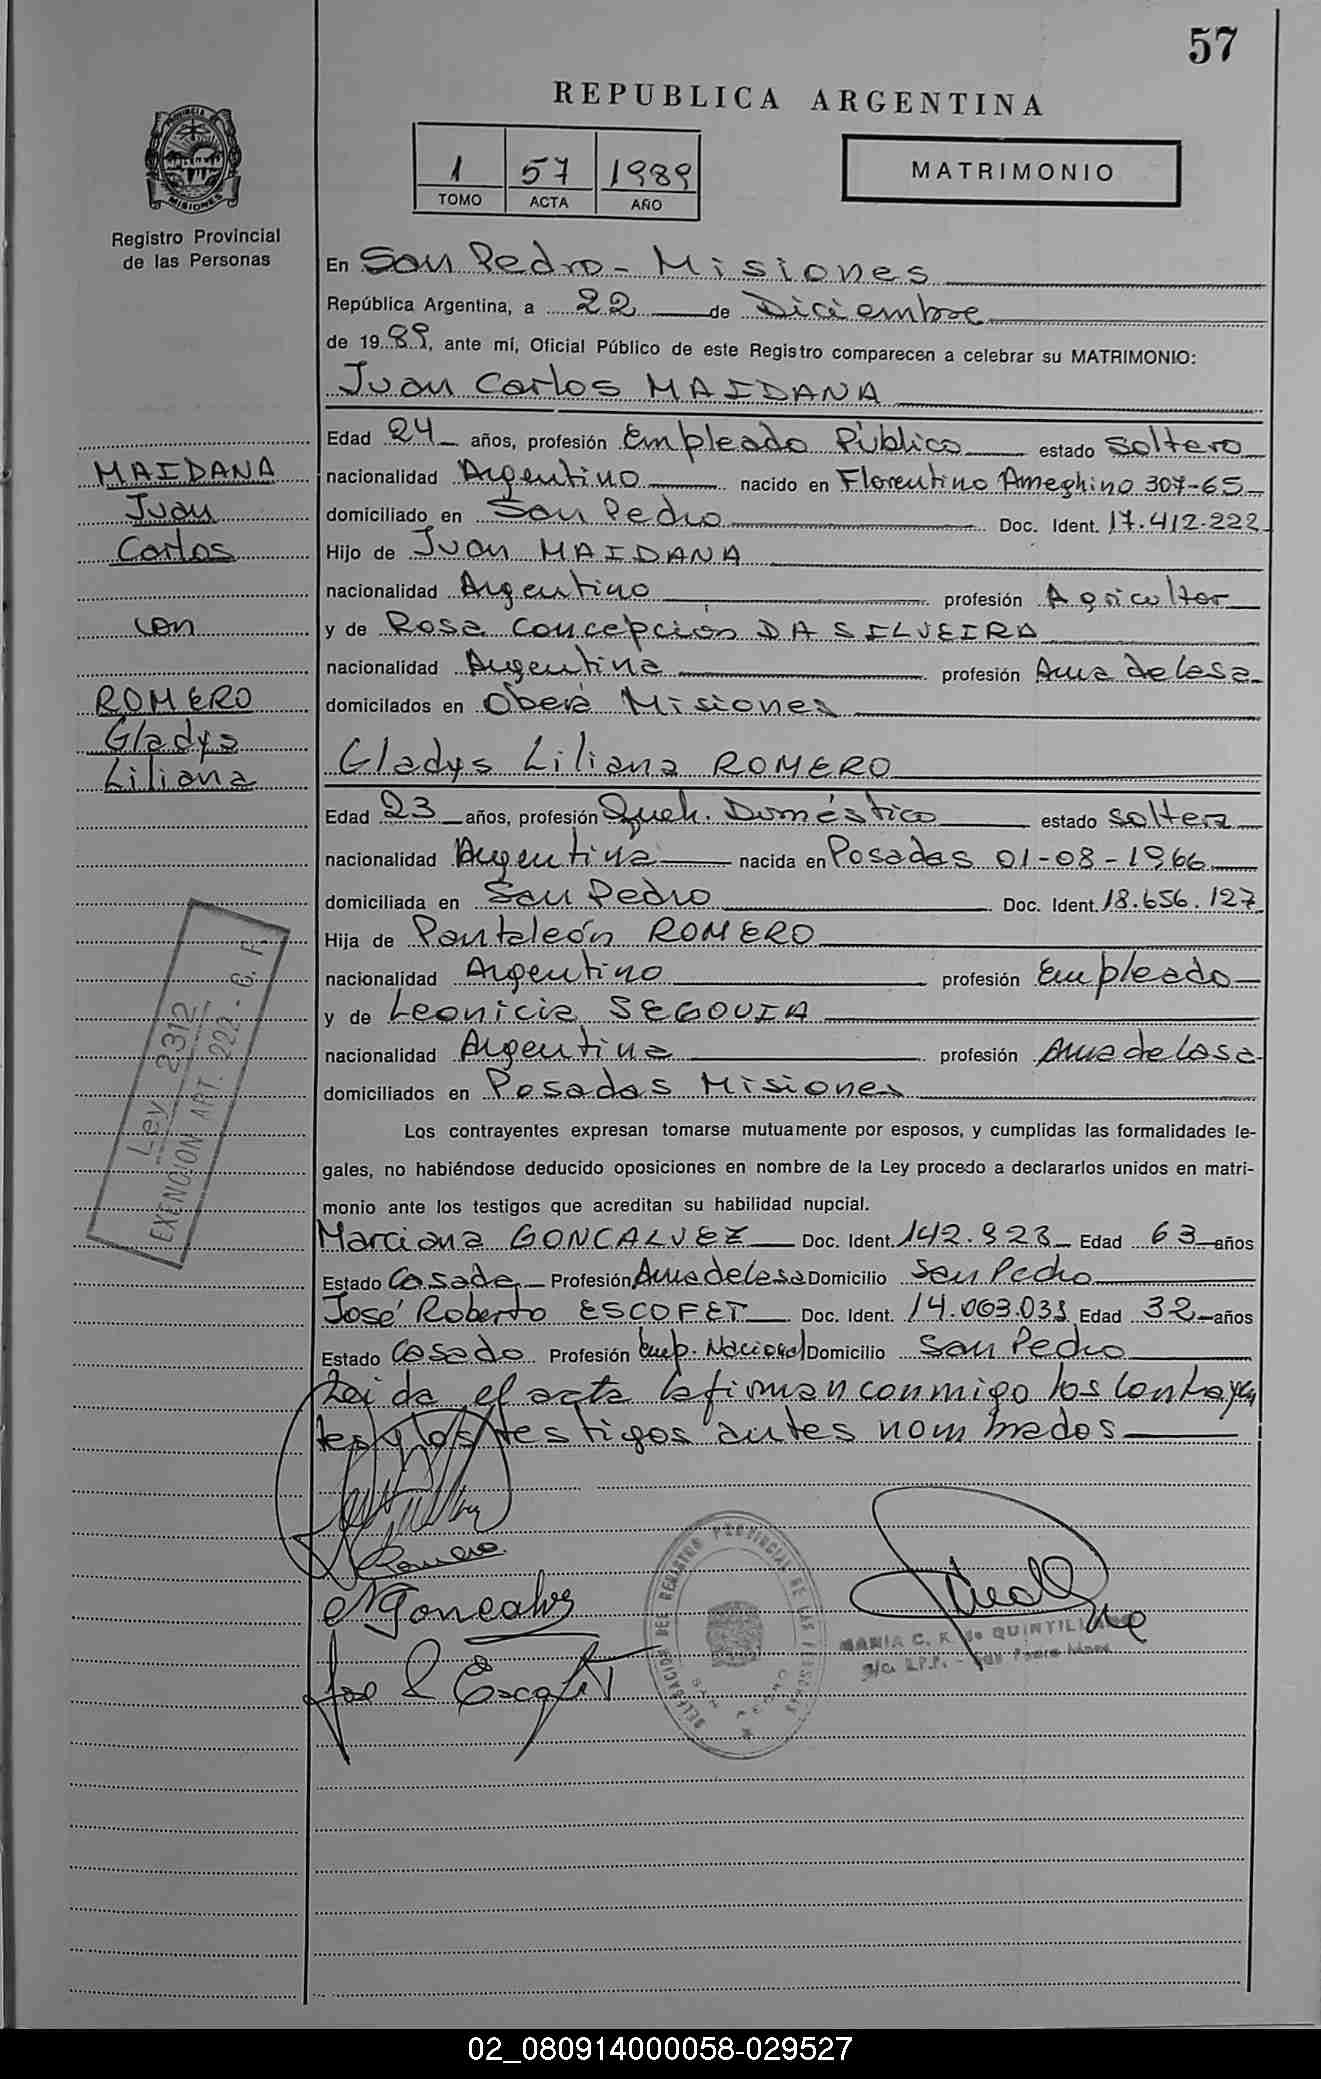 57
REPUBLICA ARGENTINA
1 57 1989
TOMO ACTA AÑO
MATRIMONIO
PROVINCIA DE
MISIONES
Registro Provincial
de las Personas
En San Pedro - Misiones
República Argentina, a 22 de Diciembre
de 1989, ante mí, Oficial Público de este Registro comparecen a celebrar su MATRIMONIO:
Juan Carlos MAIDANA
Edad 24 años, profesión Empleado Público estado Soltero
nacionalidad Argentino nacido en Florentino Ameghino 307-65
domiciliado en San Pedro Doc. Ident. 17.412.222
Hijo de Juan MAIDANA
nacionalidad Argentino profesión Agricultor
y de Rosa Concepción DA SILVEIRA
nacionalidad Argentina profesión Ama de Casa
domicilados en Oberá Misiones
MAIDANA
Juan
Carlos
con
ROMERO
Gladys
Liliana
Gladys Liliana ROMERO
Edad 23 años, profesión Queh. Doméstico estado Soltera
nacionalidad Argentina nacida en Posadas 01-08-1966
domiciliada en San Pedro Doc. Ident. 18.656.127
Hija de Pantaleón ROMERO
nacionalidad Argentino profesión Empleado
y de Leonicia SEGOVIA
nacionalidad Argentina profesión Ama de Casa
domiciliados en Posadas Misiones
Ley 2312
EXENCION ART. 222 - G. F.
Los contrayentes expresan tomarse mutuamente por esposos, y cumplidas las formalidades le-
gales, no habiéndose deducido oposiciones en nombre de la Ley procedo a declararlos unidos en matri-
monio ante los testigos que acreditan su habilidad nupcial.
Marciana GONCALVEZ Doc. Ident. 142.923 Edad 63 años
Estado Casada Profesión Ama de Casa Domicilio San Pedro
José Roberto ESCOFET Doc. Ident. 14.063.031 Edad 32 años
Estado Casado Profesión Emp. Nacional Domicilio San Pedro
Leida el acta la firman conmigo los Contrayen
tes y los testigos antes nombrados
Romero
M Goncalvez
Jose R Escofet
DELEGACION DEL REGISTRO PROVINCIAL DE LAS PERSONAS
SAN PEDRO
MARIA C. K. de QUINTILL
S/C. R.P.P. - San Pedro Mnes
02_080914000058-029527